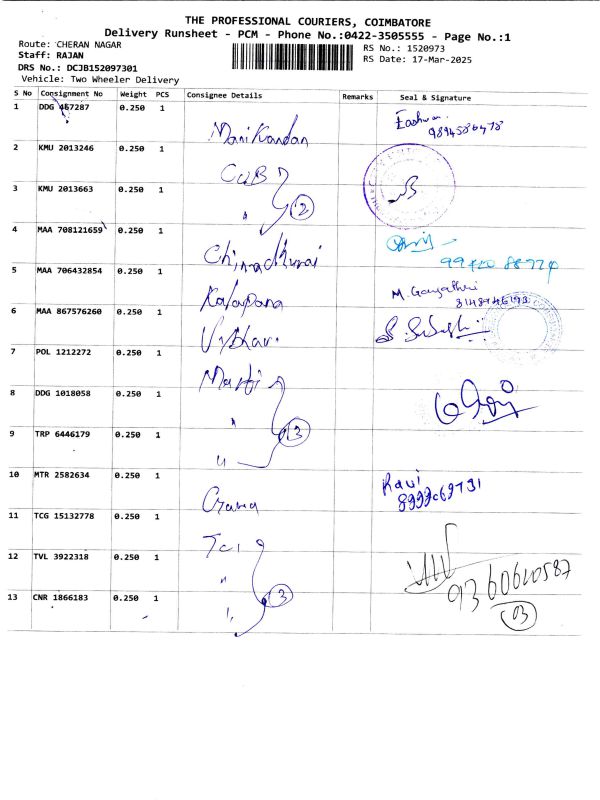 THE PROFESSIONAL COURIERS, COIMBATORE
Delivery Runsheet - PCM - Phone No.:0422-3505555 - Page No.:1
Route: CHERAN NAGAR
RS No.: 1520973
Staff: RAJAN
RS Date: 17-Mar-2025
DRS No.: DCJB152097301
Vehicle: Two Wheeler Delivery
S No Consignment No Weight PCS Consignee Details Remarks Seal & Signature
1 DDG 467287 0.250 1 Manikandan Eashwar
9894586478
2 KMU 2013246 0.250 1 CUB
3 KMU 2013663 0.250 1 " 2
4 MAA 708121659 0.250 1 Chinnadhurai
5 MAA 706432854 0.250 1 Kalapana M. Gayathri
6 MAA 867576260 0.250 1
7 POL 1212272 0.250 1
8 DDG 1018058 0.250 1 "
9 TRP 6446179 0.250 1 " 3
10 MTR 2582634 0.250 1 Ravi
11 TCG 15132778 0.250 1 TCI
12 TVL 3922318 0.250 1 "
9360610587
13 CNR 1866183 0.250 1 " 3
03